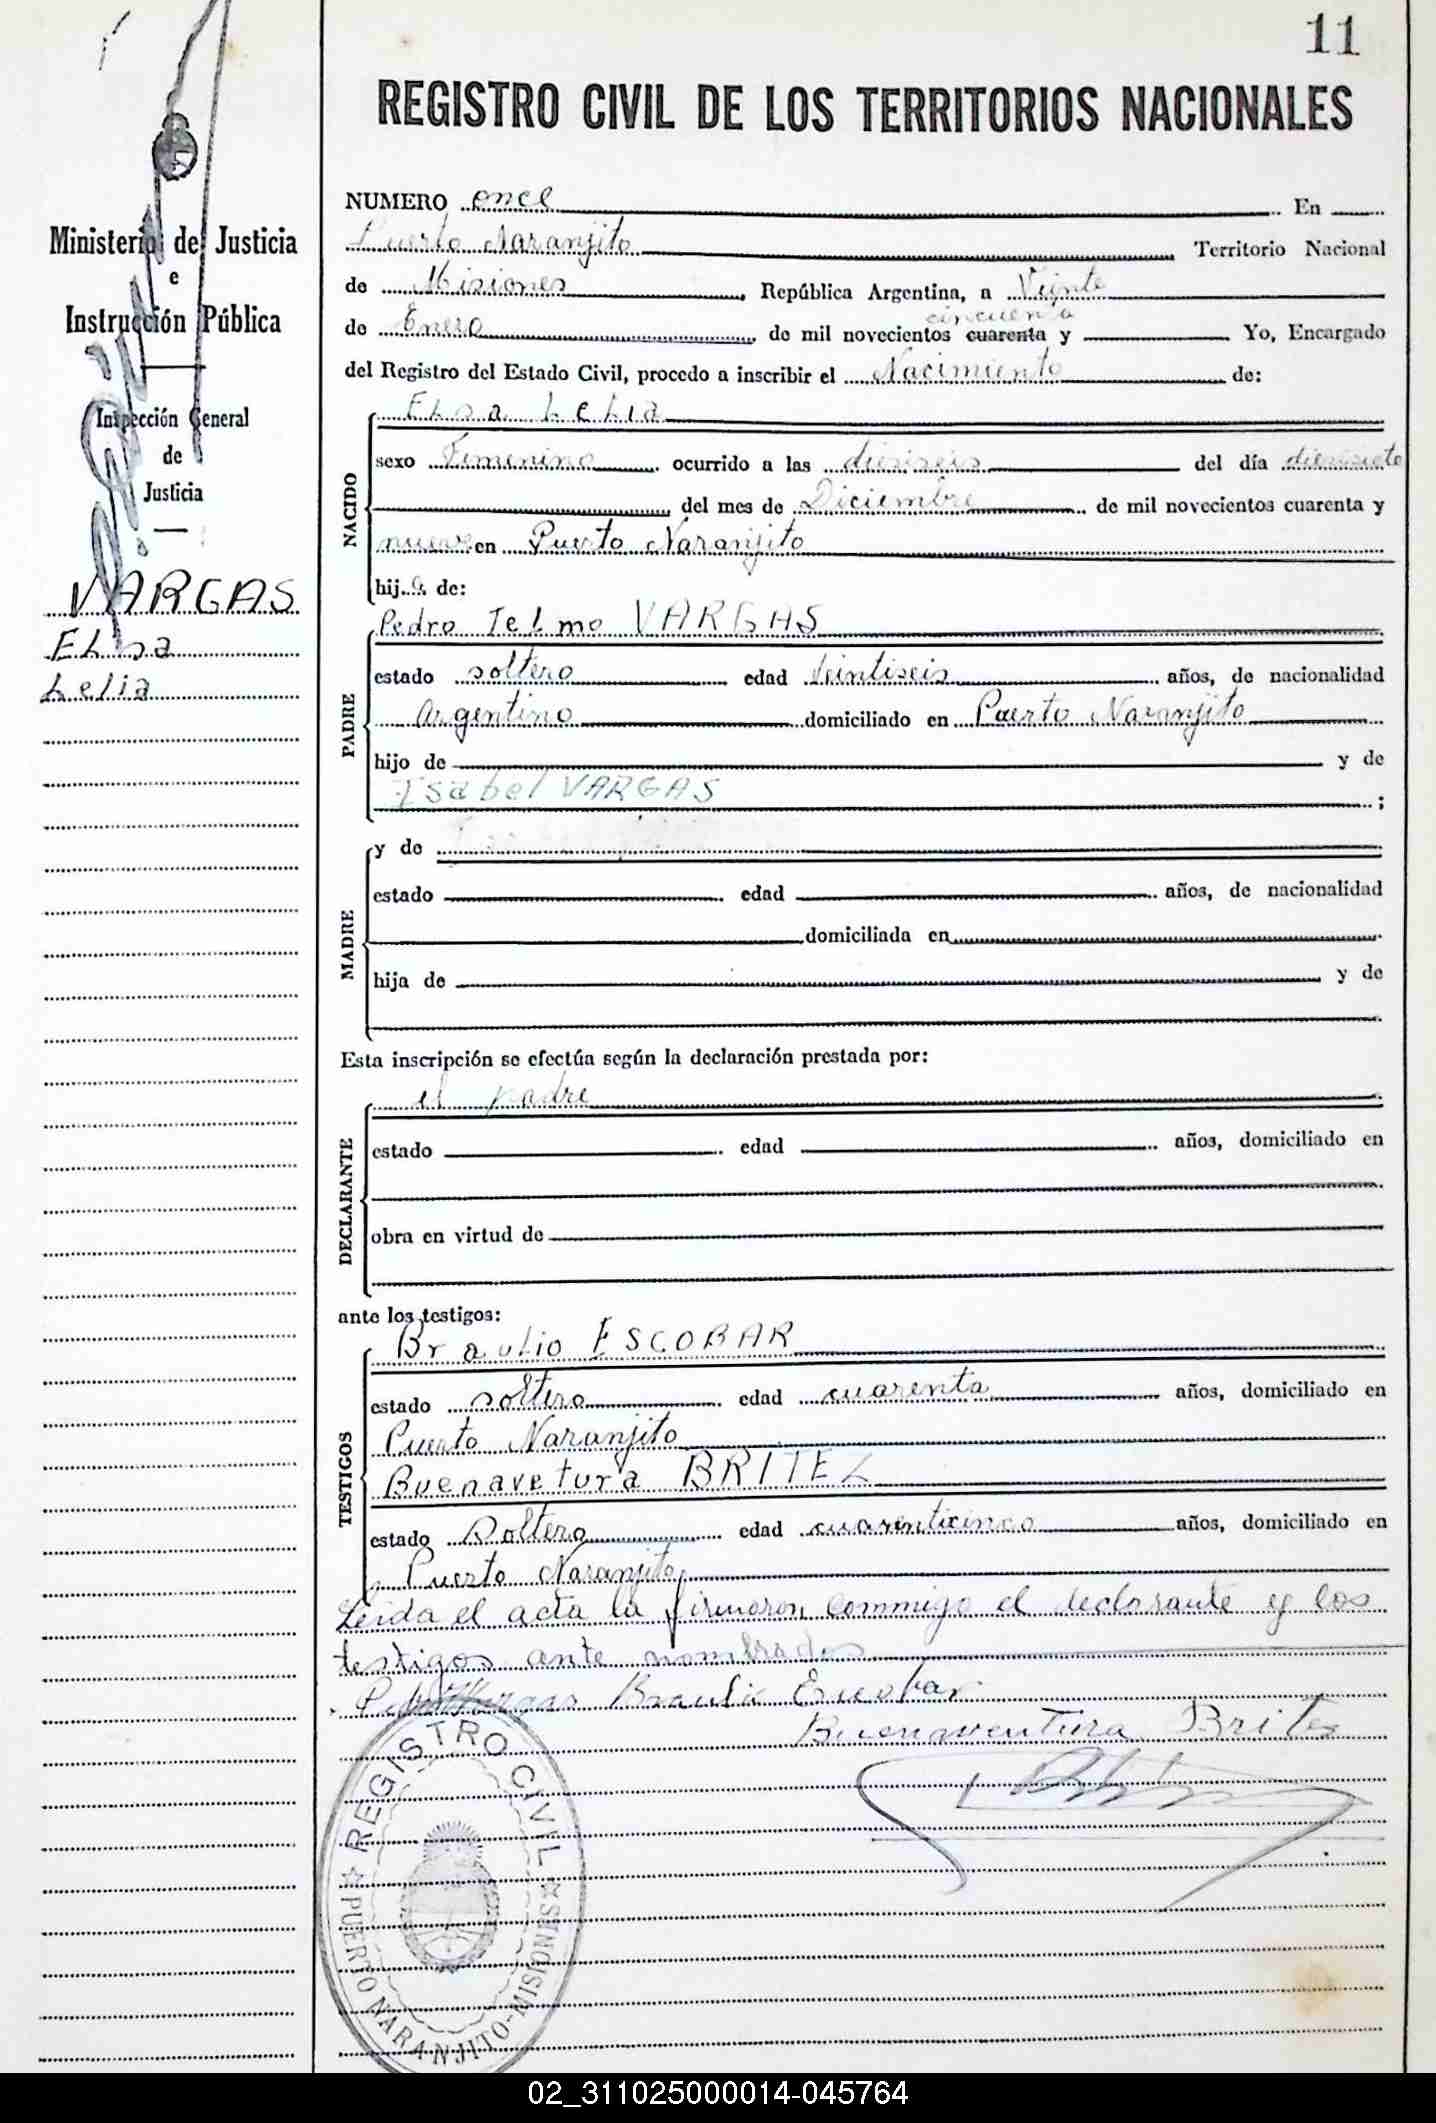 11
REGISTRO CIVIL DE LOS TERRITORIOS NACIONALES
Ministerio de Justicia
e
Instrucción Pública
Inspección General
de
Justicia
VARGAS
Elsa
Lelia
NUMERO once En
Puerto Naranjito Territorio Nacional
de Misiones República Argentina, a Veinte
cincuenta
de Enero de mil novecientos cuarenta y Yo, Encargado
del Registro del Estado Civil, procedo a inscribir el Nacimiento de:
NACIDO
Elsa Lelia
sexo Femenino ocurrido a las dieciseis del día diecisiete
del mes de Diciembre de mil novecientos cuarenta y
nueve en Puerto Naranjito
hija de:
PADRE
Pedro Telmo VARGAS
estado soltero edad veintiseis años, de nacionalidad
Argentino domiciliado en Puerto Naranjito
hijo de y de
Isabel VARGAS ;
MADRE
y de
estado edad años, de nacionalidad
domiciliada en
hija de y de
Esta inscripción se efectúa según la declaración prestada por:
DECLARANTE
el padre
estado edad años, domiciliado en
obra en virtud de
ante los testigos:
TESTIGOS
Braulio ESCOBAR
estado soltero edad cuarenta años, domiciliado en
Puerto Naranjito
Buenavetura BRITEZ
estado Soltero edad cuarenticinco años, domiciliado en
Puerto Naranjito
Leida el acta la firmaron commigo el declarante y los
testigos ante nombrados
Vargas Braulio Escobar
Buenaventura Brites
REGISTRO CIVIL
PUERTO NARANJITO-MISIONES
02_311025000014-045764